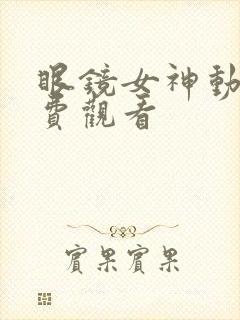 眼鏡女神動
費觀看
賓果賓果